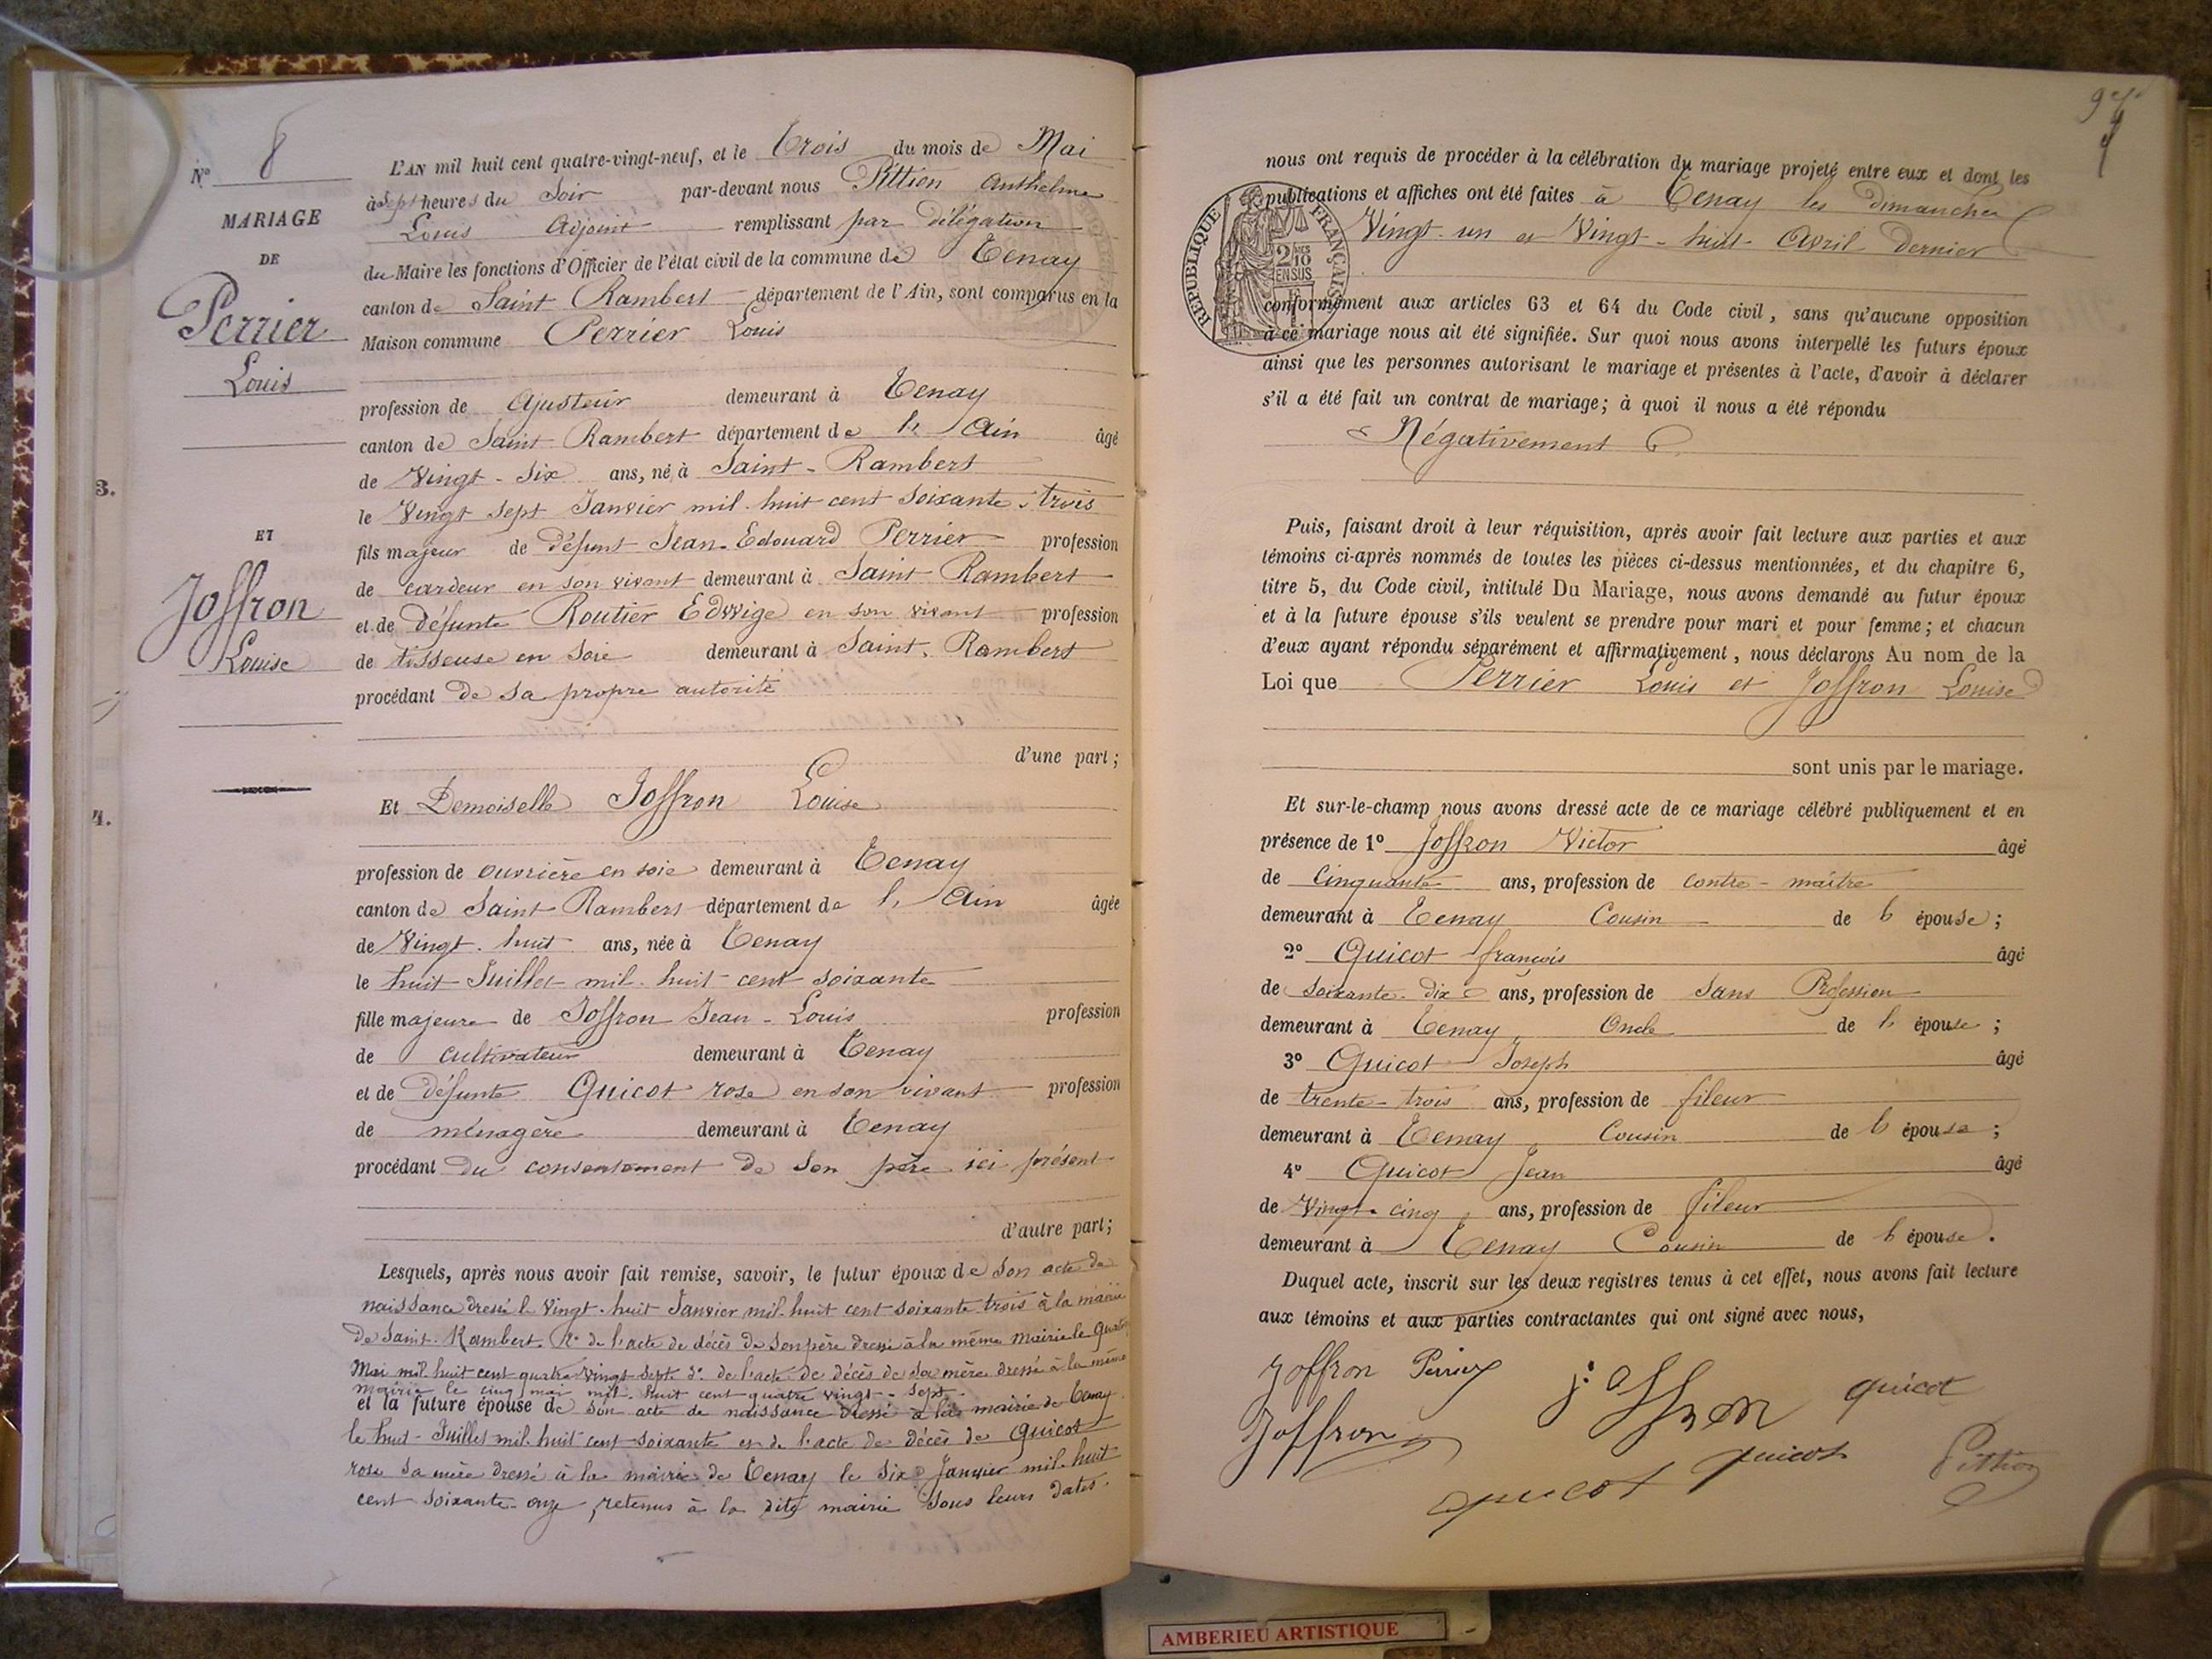 Nº 8
MARIAGE
DE
Perrier
Louis
ET
Joffron
Louise
3.
4.
L'AN mil huit cent quatre-vingt-neuf, et le Trois du mois de Mai
à sept heures du Soir par-devant nous Pittion Anthelme
Louis Adjoint remplissant par délégation
du Maire les fonctions d'Officier de l'état civil de la commune de Tenay
canton de Saint Rambert département de l'Ain, sont comparus en la
Maison commune Perrier Louis
profession de Ajusteur demeurant à Tenay
canton de Saint Rambert département de l'Ain âgé
de Vingt-Six ans, né à Saint-Rambert
le Vingt Sept Janvier mil huit cent soixante-trois
fils majeur de défunt Jean-Edouard Perrier profession
de cardeur en son vivant demeurant à Saint Rambert
et de défunte Routier Edwige en son vivant profession
de tisseuse en Soie demeurant à Saint-Rambert
procédant de sa propre autorité
d'une part ;
Et Demoiselle Joffron Louise
profession de ouvrière en soie demeurant à Tenay
canton de Saint Rambert département de l'Ain âgée
de Vingt-huit ans, née à Tenay
le huit Juillet mil huit cent soixante
fille majeure de Joffron Jean-Louis profession
de cultivateur demeurant à Tenay
et de défunte Quicot rose en son vivant profession
de ménagère demeurant à Tenay
procédant du consentement de son père ici présent
d'autre part;
Lesquels, après nous avoir fait remise, savoir, le futur époux de son acte de
naissance dressé le Vingt-huit Janvier mil huit cent soixante trois à la mairie
de Saint-Rambert. 2º de l'acte de décès de son père dressé à la même Mairie le quatre
Mai mil huit cent quatre vingt-sept 3º de l'acte de décès de sa mère dressé à la même
mairie le cinq mai mil huit cent quatre vingt-sept.
et la future épouse de son acte de naissance dressé à la mairie de Tenay
le huit Juillet mil huit cent soixante et de l'acte de décès de Quicot
rose sa mère dressé à la mairie de Tenay le Six Janvier mil huit
cent soixante-onze, retenus à la dite mairie sous leurs dates.
97
nous ont requis de procéder à la célébration du mariage projeté entre eux et dont les
publications et affiches ont été faites à Tenay les Dimanches
Vingt-un et Vingt-huit Avril dernier
RÉPUBLIQUE FRANÇAISE
2/10
EN SUS
conformément aux articles 63 et 64 du Code civil, sans qu'aucune opposition
à ce mariage nous ait été signifiée. Sur quoi nous avons interpellé les futurs époux
ainsi que les personnes autorisant le mariage et présentes à l'acte, d'avoir à déclarer
s'il a été fait un contrat de mariage; à quoi il nous a été répondu
Négativement
Puis, faisant droit à leur réquisition, après avoir fait lecture aux parties et aux
témoins ci-après nommés de toutes les pièces ci-dessus mentionnées, et du chapitre 6,
titre 5, du Code civil, intitulé Du Mariage, nous avons demandé au futur époux
et à la future épouse s'ils veulent se prendre pour mari et pour femme; et chacun
d'eux ayant répondu séparément et affirmativement, nous déclarons Au nom de la
Loi que Perrier Louis et Joffron Louise
sont unis par le mariage.
Et sur-le-champ nous avons dressé acte de ce mariage célébré publiquement et en
présence de 1º Joffron Victor âgé
de Cinquante ans, profession de contre-maître
demeurant à Tenay Cousin de l'épouse;
2º Quicot françois âgé
de soixante-dix ans, profession de Sans Profession
demeurant à Tenay Oncle de l'épouse;
3º Quicot Joseph âgé
de trente-trois ans, profession de fileur
demeurant à Tenay Cousin de l'épouse;
4º Quicot Jean âgé
de Vingt-cinq ans, profession de fileur
demeurant à Tenay Cousin de l'épouse.
Duquel acte, inscrit sur les deux registres tenus à cet effet, nous avons fait lecture
aux témoins et aux parties contractantes qui ont signé avec nous,
Joffron Perrier joffron quicot
Joffron quicot quicot Pittion
AMBERIEU ARTISTIQUE